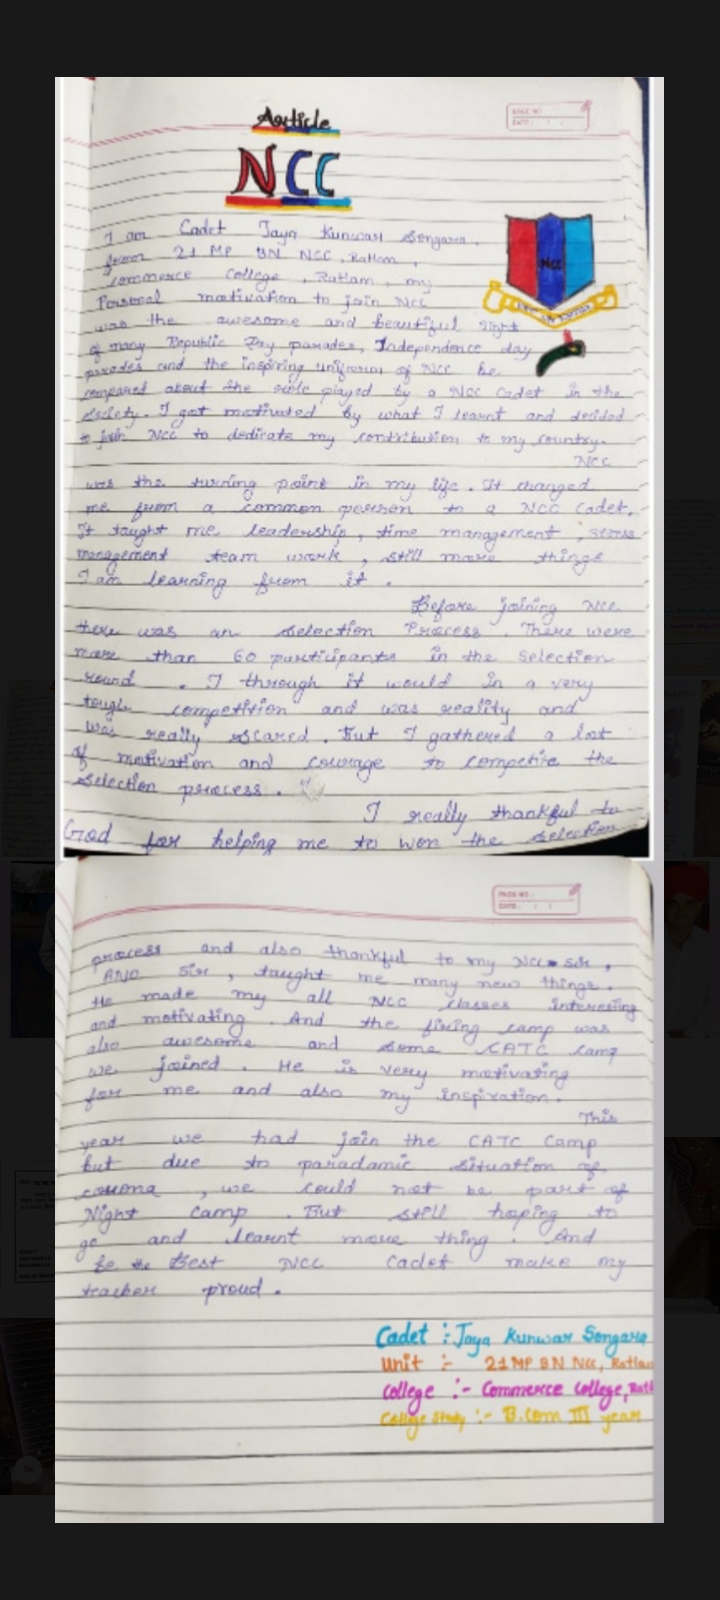 PAGE NO :
DATE : / /
Article
NCC
I am Cadet Jaya Kunwar Songara.
from 21 MP BN NCC, Ratlam,
commerce College, Ratlam, my
Personal motivation to join NCC
was the awesome and beautiful sight
of many Republic Day parades, Independence day
parades and the inspiring uniform of NCC he
compared about the role played by a NCC Cadet in the
Society. I got motivated by what I learnt and decided
to join NCC to dedicate my contribution to my country.
NCC
was the turning point in my life. It changed
me from a common person to a NCC Cadet.
It taught me leadership, time management, stress
management team work, still more things
I am learning from it.
Before joining NCC
there was an selection Process. There were
more than 60 participants in the selection
round. I through it would in a very
tough competition and was reality and
was really scared. But I gathered a lot
of motivation and courage to competite the
selection process.
I really thankful to
God for helping me to won the selection
PAGE NO :
DATE : / /
process and also thankful to my NCC sir,
ANO Sir, taught me many new things.
He made my all NCC classes Interesting
and motivating. And the firing camp was
also awesome and some CATC camp
we joined. He is very motivating
for me and also my inspiration.
This
year we had join the CATC Camp
but due to paradamic situation of
corona, we could not be part of
Night Camp. But still hoping to
go and learnt more thing. And
be the Best NCC Cadet make my
teacher proud.
Cadet :- Jaya Kunwar Songara
Unit :- 21 MP BN NCC, Ratlam
College :- Commerce College, Ratl
College Study :- B.Com III year